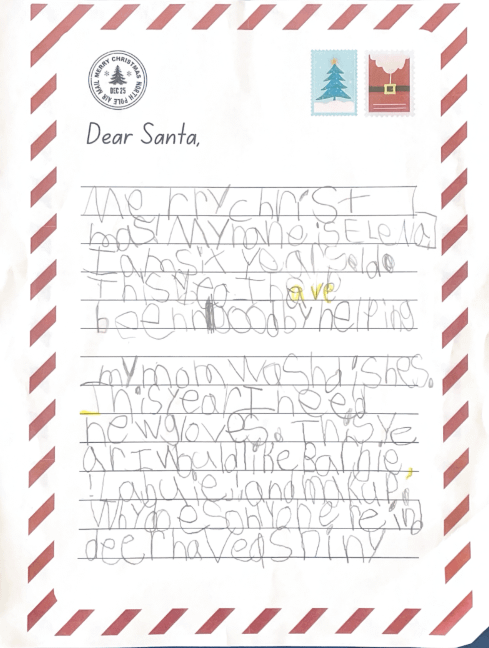 MERRY CHRISTMAS
DEC 25
NORTH POLE AIR MAIL
Dear Santa,
Me rrychrist
mas! Myname isELeNa,
I amsix yearsoldo
Thisyea I have
beenngoodbyhelping
mymomwashdishes.
ThisyearIneed
newgloves. Thisye
arIwouldlikeBarbie,
Labubie,andmakup.
Whydoesonyonerein
deerhavedshiny